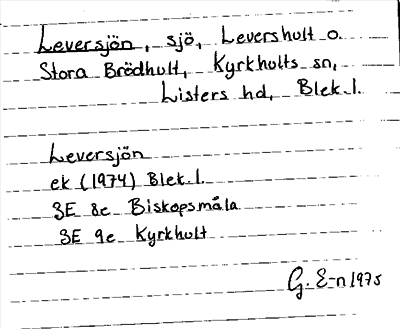 Leversjön, sjö, Levershult o.
Stora Brödhult, Kyrkhults sn,
Listers hd, Blek. l.
Leversjön
ek (1974) Blek. l.
3E 8e Biskopsmåla
3E 9e Kyrkhult
G. E-n 1975